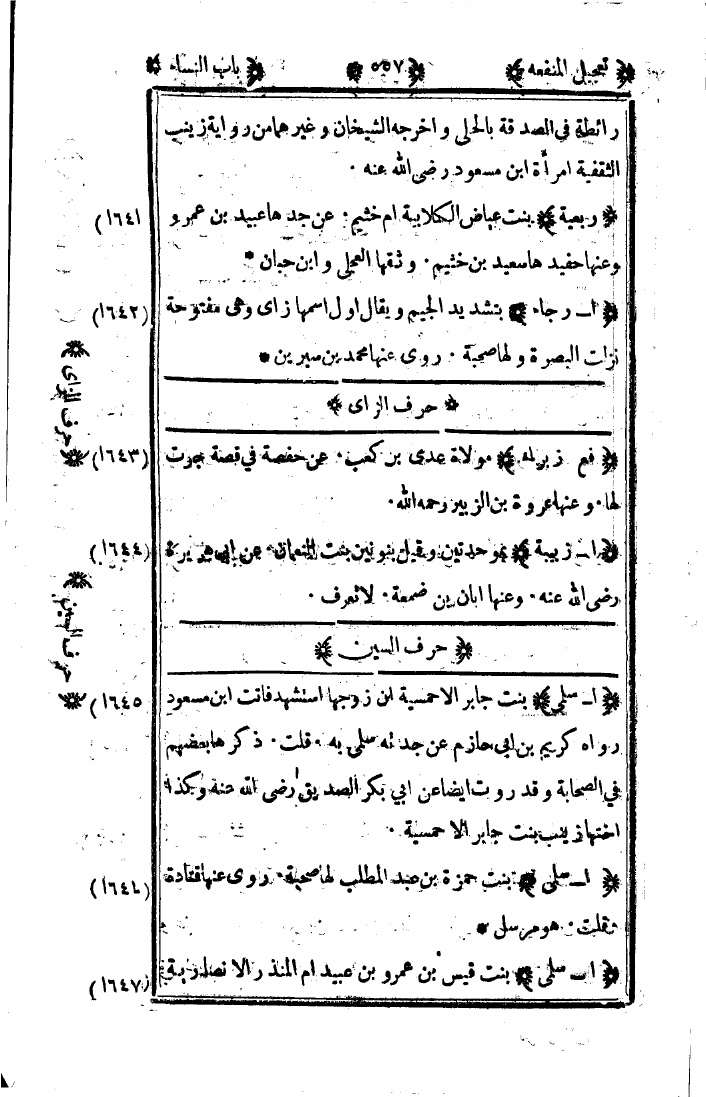 ﴿ تعجيل المنفعه ﴾ ﴿ ٥٥٧ ﴾ ﴿ باب النساء ﴾
رائطة في الصدقة بالحلي و اخرجه الشيخان و غيرهما من رواية زينب
الثقفية امرأة ابن مسعود رضى الله عنه ٠
﴿ ربعية ﴾ بنت عياض الكلابية ام خثيم ٠ عن جدها عبيد بن عمرو و (١٦٤١)
وعنها حفيدها سعيد بن خثيم ٠ و ثقها العجلى و ابن حبان *
﴿ اـ رجاء ﴾ بتشديد الجيم و يقال اول اسمها زاى وهى مفتوحة (١٦٤٢)
نزلت البصرة و لها صحبة ٠ روى عنها محمد بن سيرين *
﴿ حرف الزاى ﴾
﴿ حرف الزاى ﴾
﴿ فع زبراء ﴾ مولاة عدى بن كعب ٠ عن حفصة في قصة جرت (١٦٤٣)
لها ٠ و عنها عروة بن الزبير رحمه الله ٠
﴿ اـ زبيبة ﴾ بموحدتين و قيل بنونين بنت النعمان ٠ عن ابى هريرة (١٦٤٤)
رضى الله عنه ٠ وعنها ابان بن ضمعة ٠ لا تعرف ٠
﴿ حرف السين ﴾
﴿ حرف السين ﴾
﴿ اـ سلمى ﴾ بنت جابر الاحمسية ان زوجها استشهد فاتت ابن مسعود (١٦٤٥)
رواه كريم بن ابى حازم عن جدته سلمى به ٠ قلت ٠ ذكرها بعضهم
في الصحابة و قد روت ايضا عن ابي بكر الصديق رضى الله عنه وكذا
اختها زينب بنت جابر الاحمسية ٠
﴿ اـ سلمى ﴾ بنت حمزة بن عبد المطلب لها صحبة ٠ روى عنها قتادة (١٦٤٦)
قلت ٠ هو مرسل *
﴿ اـ سلمى ﴾ بنت قيس بن عمرو بن عبيد ام المنذر الانصارية (١٦٤٧)